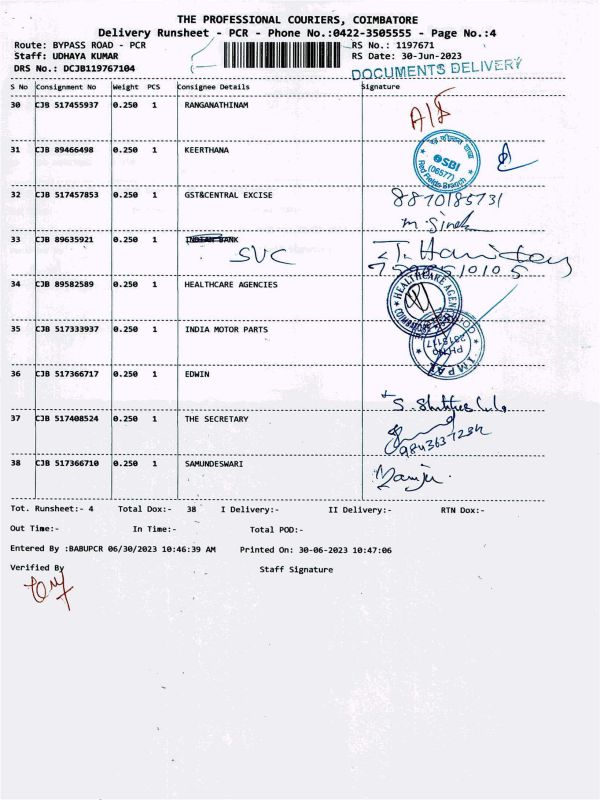 THE PROFESSIONAL COURIERS, COIMBATORE
Delivery Runsheet - PCR - Phone No.:0422-3505555 - Page No.:4
Route: BYPASS ROAD - PCR RS No.: 1197671
Staff: UDHAYA KUMAR RS Date: 30-Jun-2023
DRS No.: DCJB119767104 DOCUMENTS DELIVERY
S No Consignment No Weight PCS Consignee Details Signature
30 CJB 517455937 0.250 1 RANGANATHINAM
31 CJB 89466498 0.250 1 KEERTHANA
SBI
(06577)
Red Fields Branch
32 CJB 517457853 0.250 1 GST&CENTRAL EXCISE
8870185731
33 CJB 89635921 0.250 1 INDIAN BANK
SVC
34 CJB 89582589 0.250 1 HEALTHCARE AGENCIES
HEALTHCARE AGENC
COIMBATORE
35 CJB 517333937 0.250 1 INDIA MOTOR PARTS
IMPAL
36 CJB 517366717 0.250 1 EDWIN
37 CJB 517408524 0.250 1 THE SECRETARY
38 CJB 517366710 0.250 1 SAMUNDESWARI
Tot. Runsheet:- 4 Total Dox:- 38 I Delivery:- II Delivery:- RTN Dox:-
Out Time:- In Time:- Total POD:-
Entered By :BABUPCR 06/30/2023 10:46:39 AM Printed On: 30-06-2023 10:47:06
Verified By Staff Signature